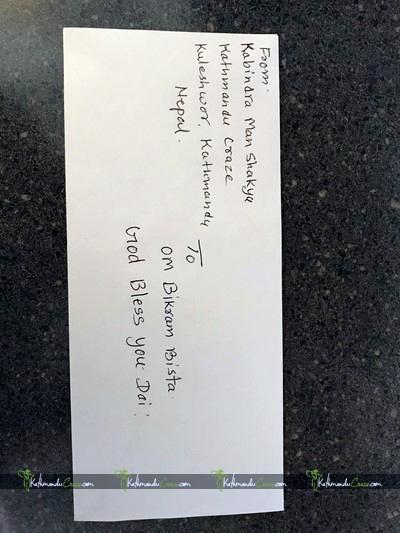 From:
Kabindra Man Shakya
Kathmandu Craze
Kuleshwor, Kathmandu
Nepal.
To
Om Bikram Bista.
God Bless you Dai!
KathmanduCraze.com KathmanduCraze.com KathmanduCraze.com KathmanduCraze.com